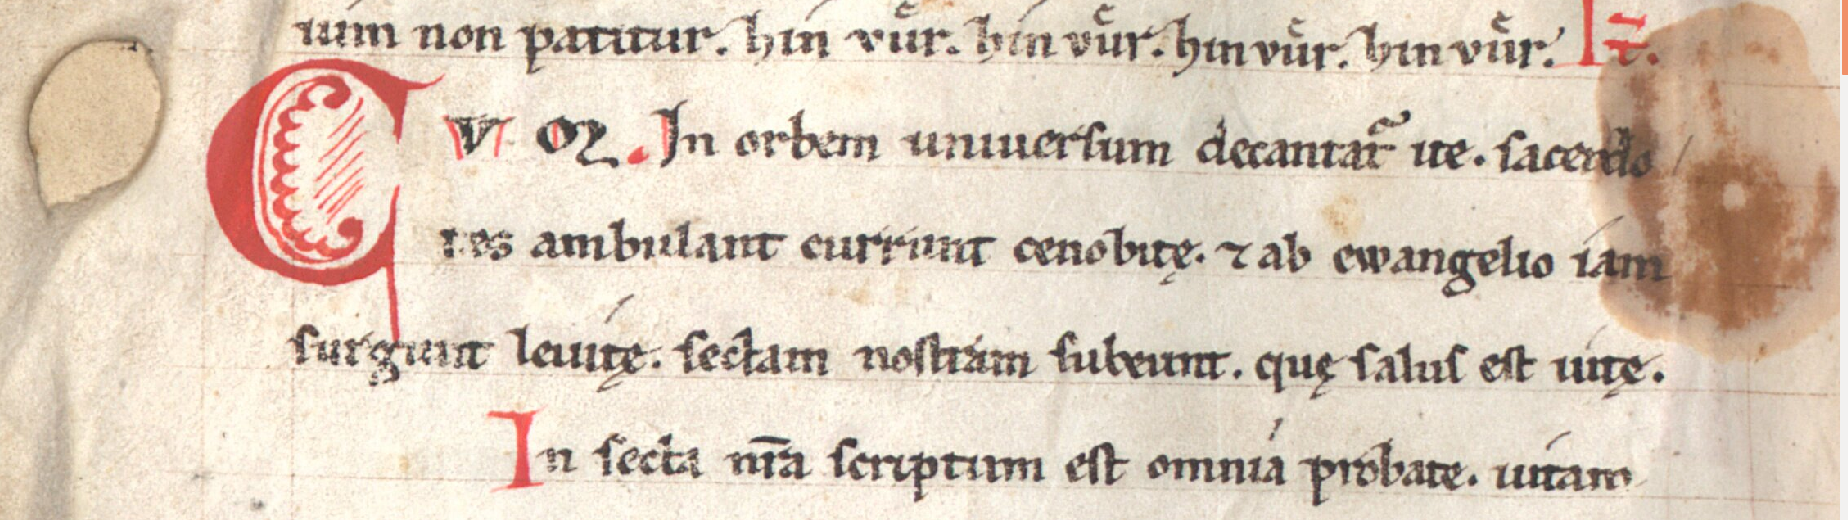 tium non patitur. hin vůr. hin vůr. hin vůr. hin vůr. It̃.
CVM In orbem uniuersum decantat̃ ite. sacerdo
tes ambulant currunt cenobitę. ⁊ ab ewangelio iam
surgunt leuitę. sectam nostram subeunt. quę salus est uitę.
In secta nr̄a scriptum est omnia probate. uitam